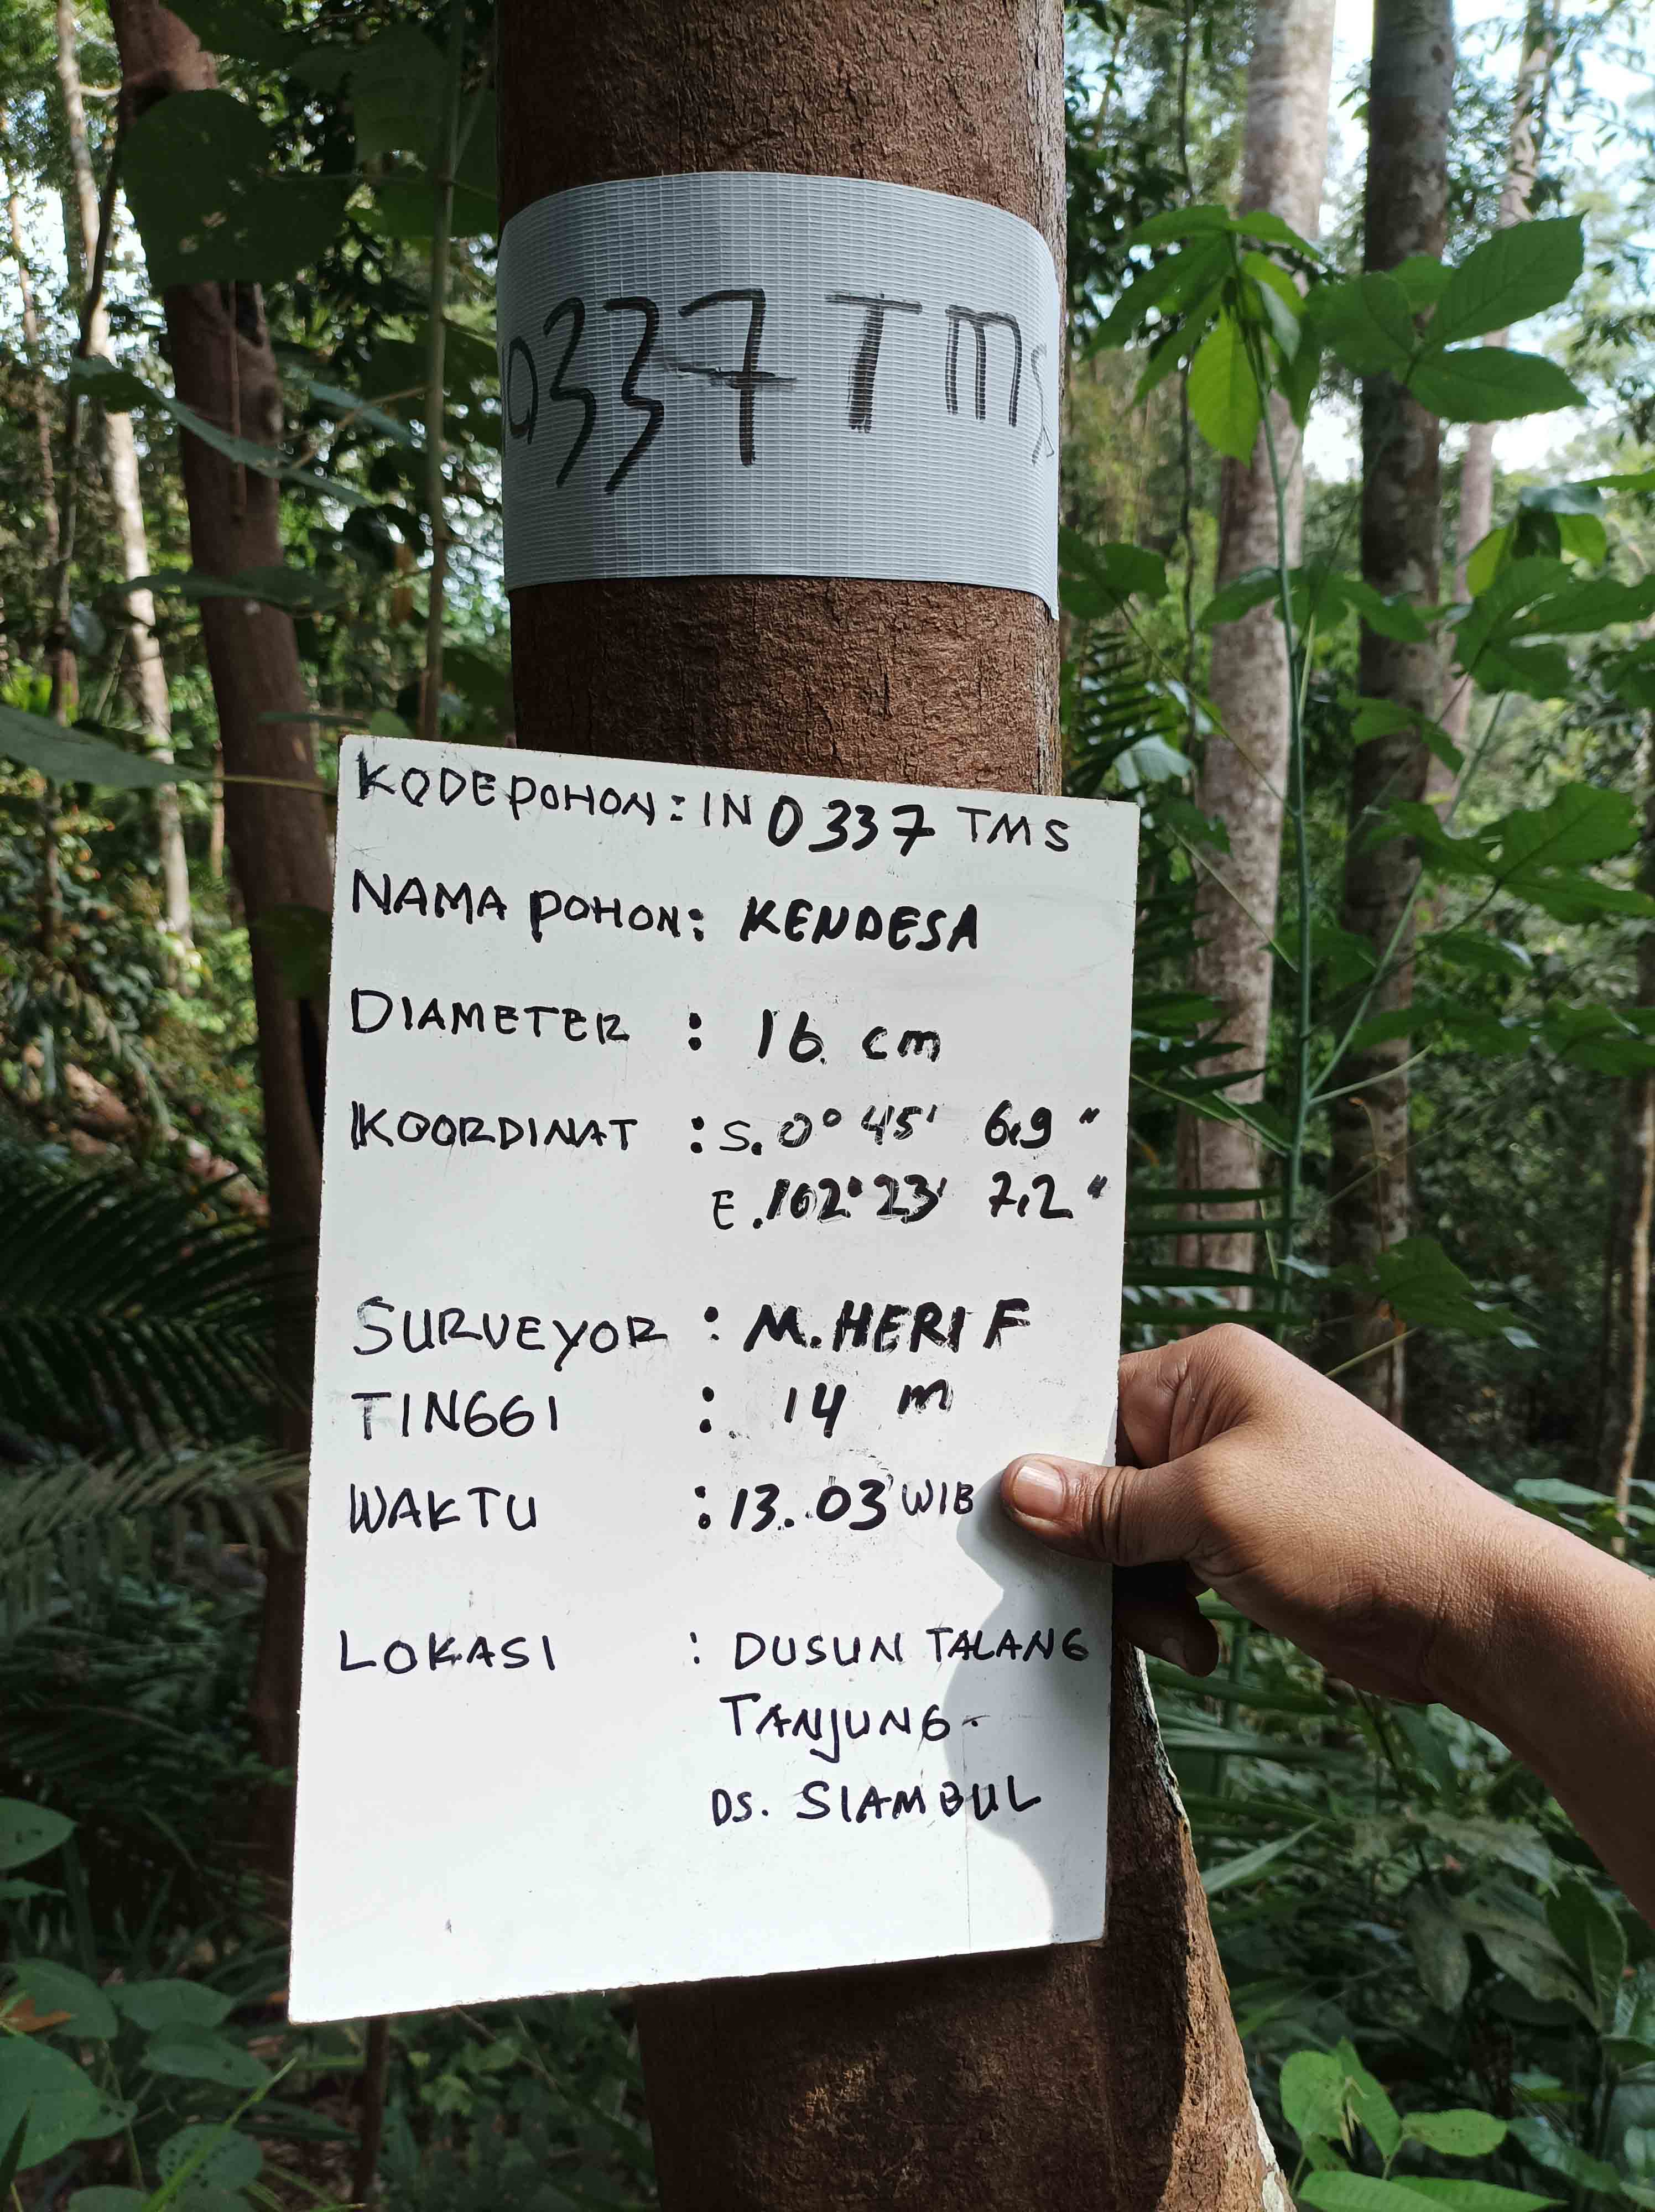 0337 TMS
KODE POHON : IN 0337 TMS
NAMA POHON : KENDESA
DIAMETER : 16 cm
KOORDINAT : S. 0° 45' 6.9 "
E. 102° 23' 7.2 "
SURVEYOR : M. HERI F
TINGGI : 14 m
WAKTU : 13. 03 WIB
LOKASI : DUSUN TALANG
TANJUNG.
DS. SIAMBUL